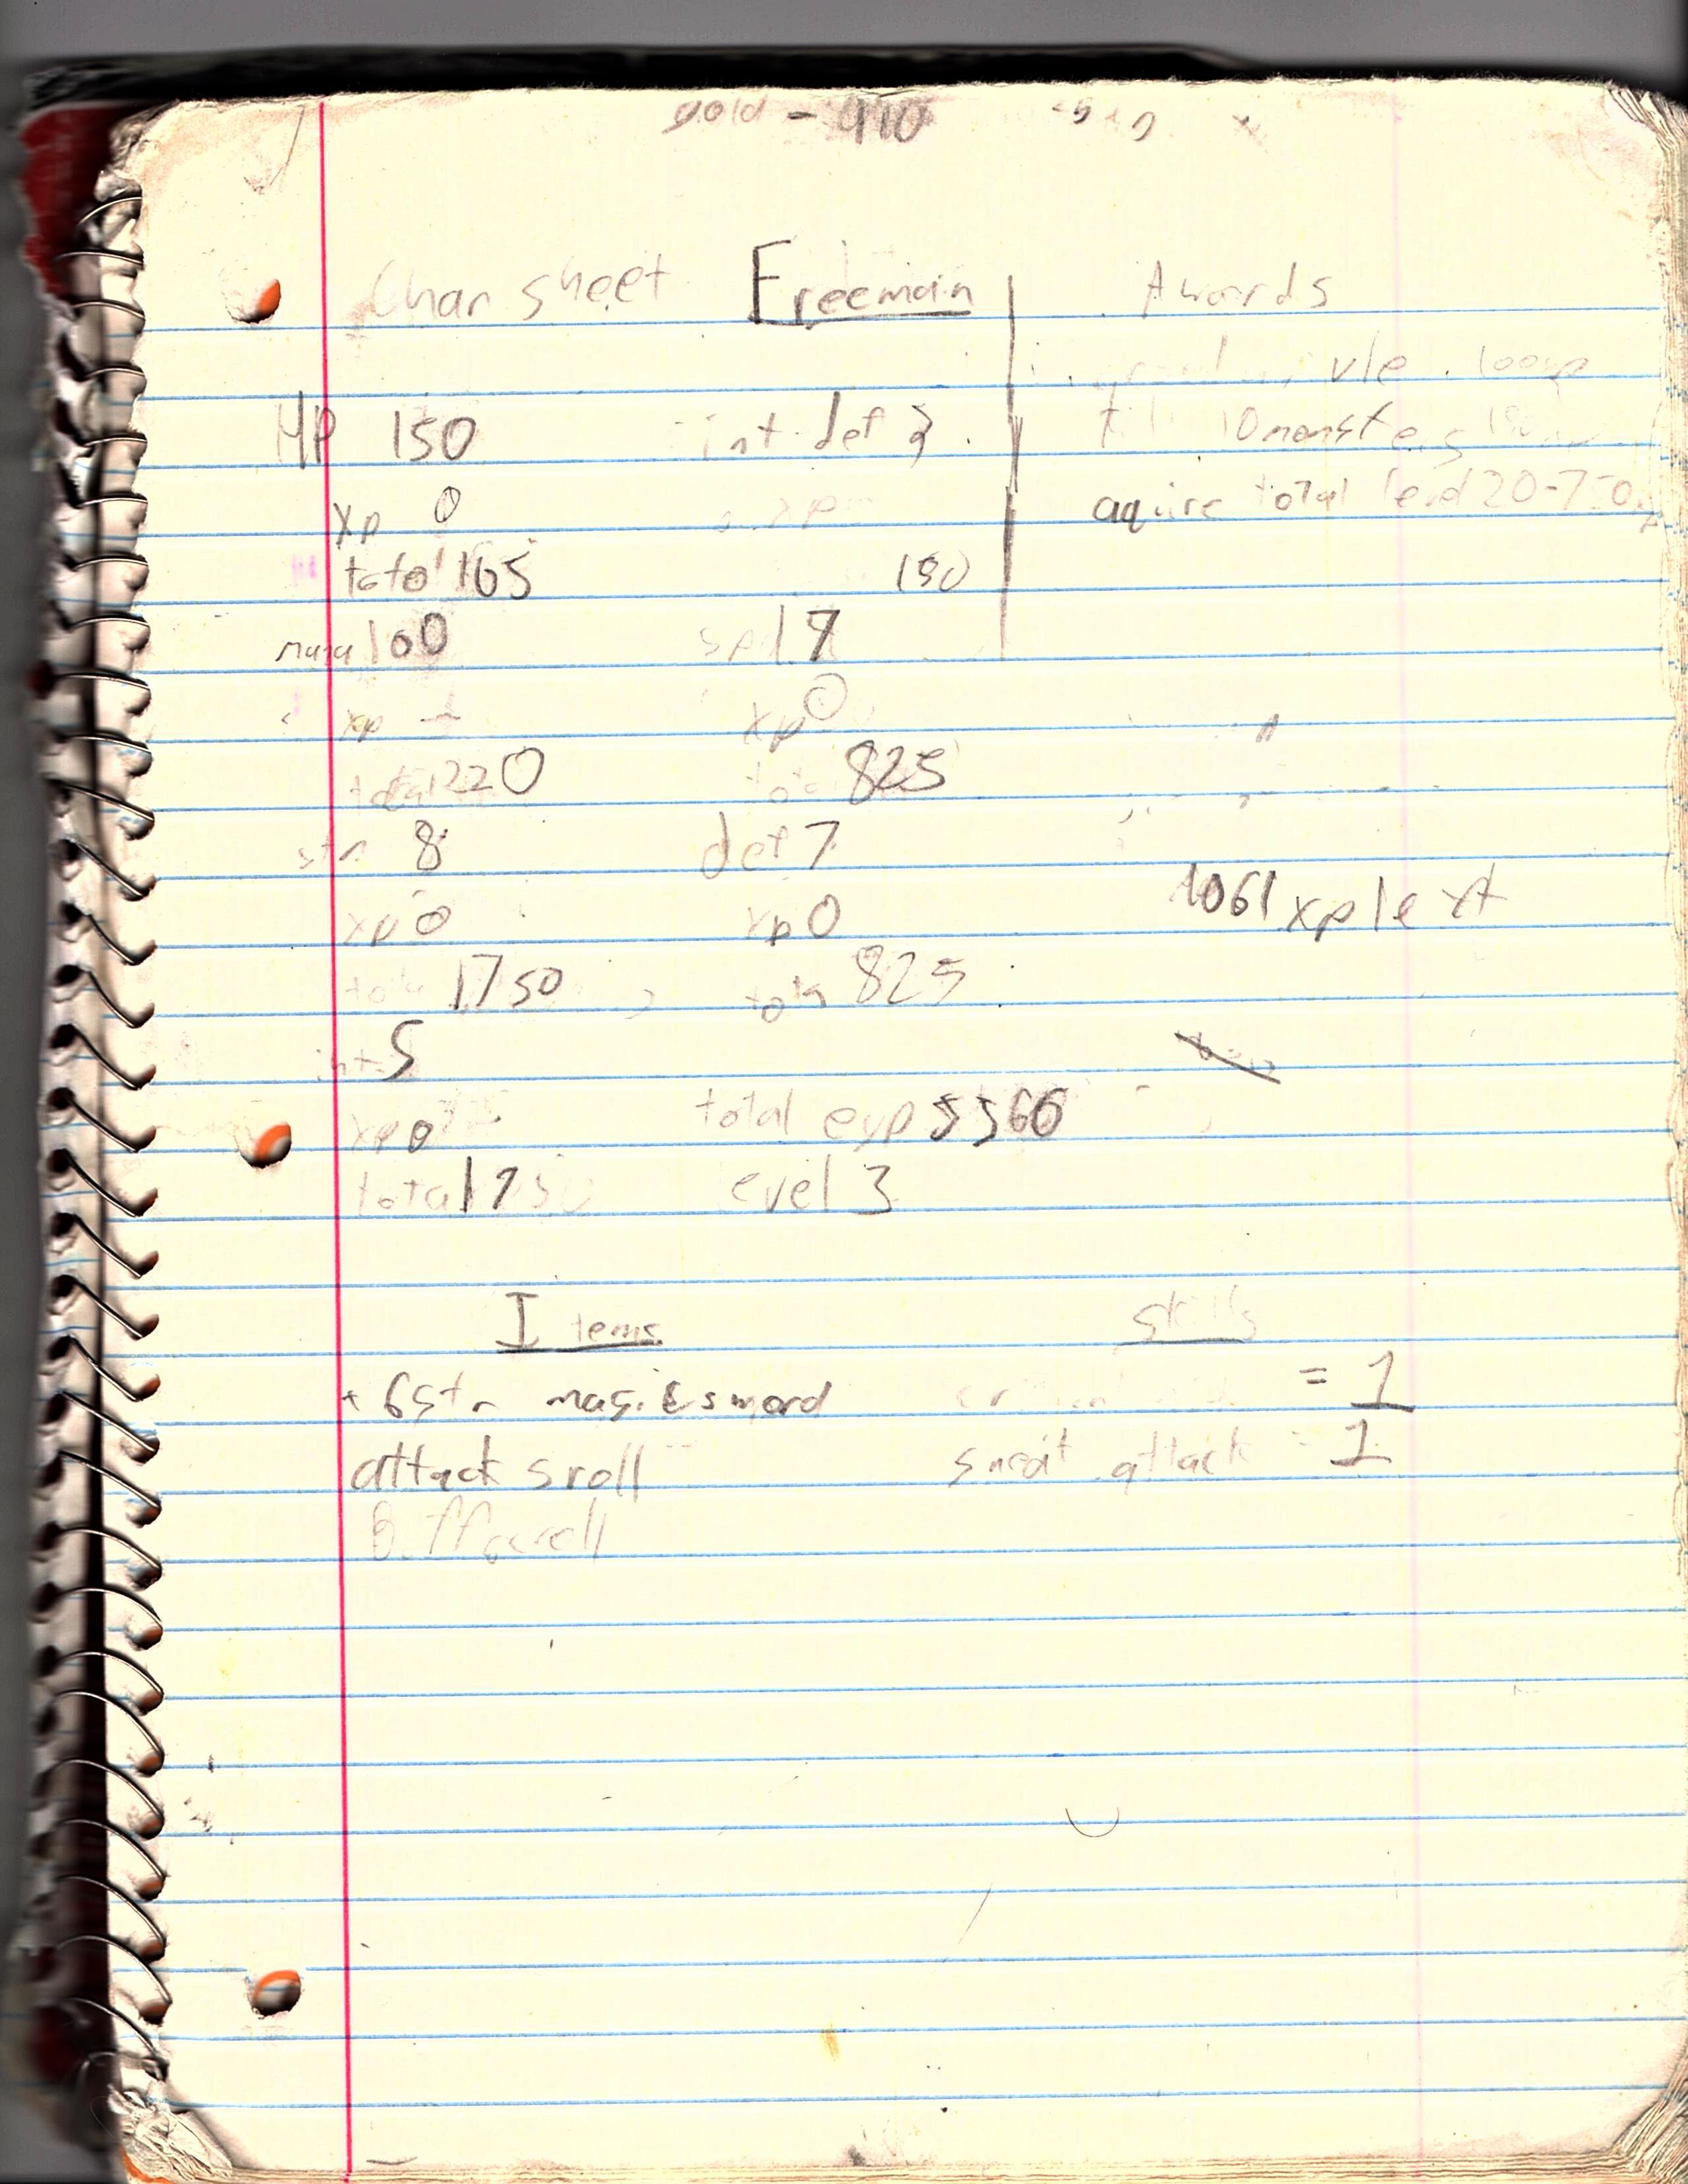 gold - 910
Char sheet Freeman Awards
HP 150 int def 3 10 monsters
xp 0 aquire total level 20-750xp
total 165 150
mana 100 spl 7
xp xp 0
total 220 total 825
str 8 def 7
xp 0 xp 0 1061 xp left
total 1750 total 825
int 5
xp 0 total exp 5560
total 1750 level 3
Items skills
+ 6 str magic sword = 1
attack sroll attack = 1